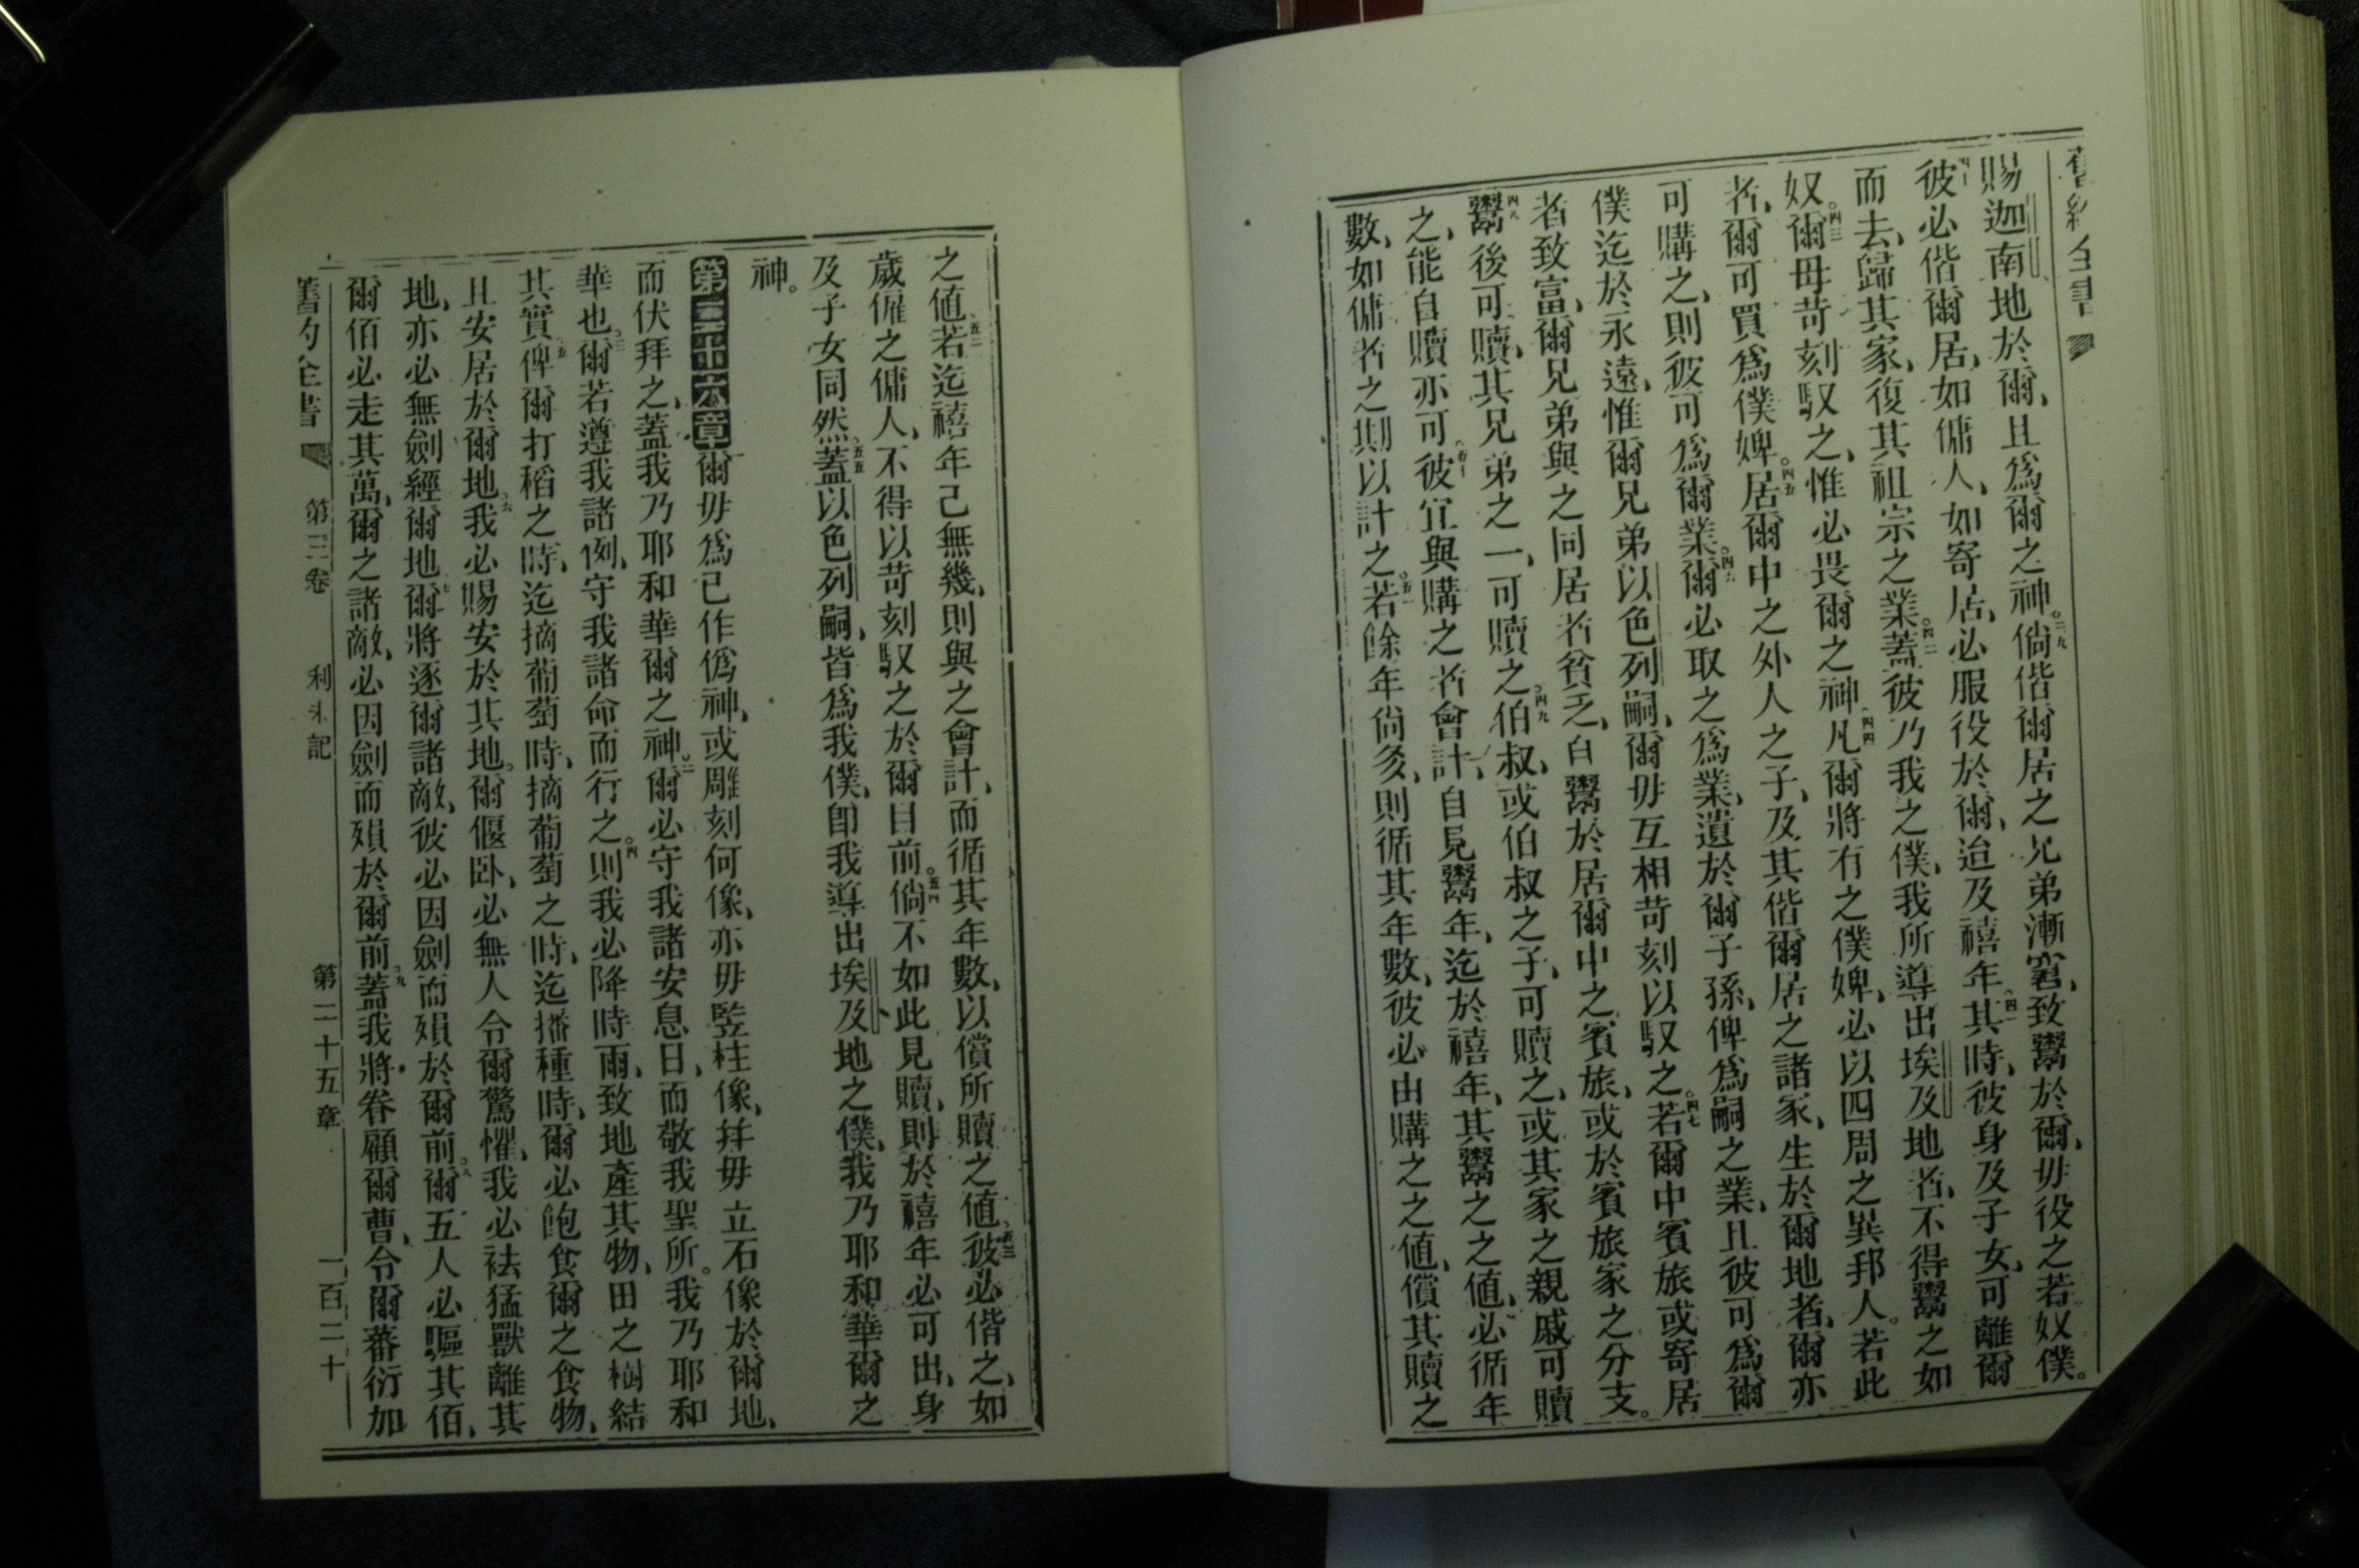 舊約全書
賜迦南地於爾、且爲爾之神。三九倘偕爾居之兄弟漸窘、致鬻於爾、毋役之若奴僕。
四十彼必偕爾居、如傭人、如寄居、必服役於爾、迨及禧年、四一其時、彼身及子女、可離爾
而去、歸其家、復其祖宗之業。四二蓋彼乃我之僕、我所導出埃及地者、不得鬻之如
奴。四三爾毋苛刻馭之、惟必畏爾之神、四四凡爾將有之僕婢、必以四周之異邦人。若此
者、爾可買爲僕婢。四五居爾中之外人之子、及其偕爾居之諸家、生於爾地者、爾亦
可購之、則彼可爲爾業。四六爾必取之爲業、遺於爾子孫、俾爲嗣之業、且彼可爲爾
僕迄於永遠、惟爾兄弟以色列嗣、爾毋互相苛刻以馭之。四七若爾中賓旅或寄居
者致富、爾兄弟與之同居者貧乏、自鬻於居爾中之賓旅、或於賓旅家之分支。
四八鬻後可贖、其兄弟之一、可贖之。四九伯叔、或伯叔之子、可贖之、或其家之親戚可贖
之、能自贖亦可。五十彼宜與購之者會計、自見鬻年、迄於禧年、其鬻之之値、必循年
數、如傭者之期以計之。五一若餘年尙多、則循其年數、彼必由購之之値、償其贖之
之値、五二若迄禧年已無幾、則與之會計、而循其年數、以償所贖之値、五三彼必偕之、如
歲僱之傭人、不得以苛刻馭之於爾目前。五四倘不如此見贖、則於禧年必可出、身
及子女同然。五五蓋以色列嗣、皆爲我僕、卽我導出埃及地之僕、我乃耶和華爾之
神。
第二十六章爾毋爲己作僞神、或雕刻何像、亦毋竪柱像、幷毋立石像於爾地、
而伏拜之、蓋我乃耶和華爾之神。二爾必守我諸安息日、而敬我聖所。我乃耶和
華也。三爾若遵我諸例、守我諸命而行之。四則我必降時雨、致地產其物、田之樹結
其實、五俾爾打稻之時、迄摘葡萄時、摘葡萄之時、迄播種時、爾必飽食爾之食物、
且安居於爾地、六我必賜安於其地。爾偃卧、必無人令爾驚懼、我必袪猛獸離其
地、亦必無劍經爾地、七爾將逐爾諸敵、彼必因劍而殞於爾前。八爾五人必驅其佰、
爾佰必走其萬、爾之諸敵、必因劍而殞於爾前。九蓋我將眷顧爾曹、令爾蕃衍加
舊約全書 第三卷 利未記 第二十五章 一百二十